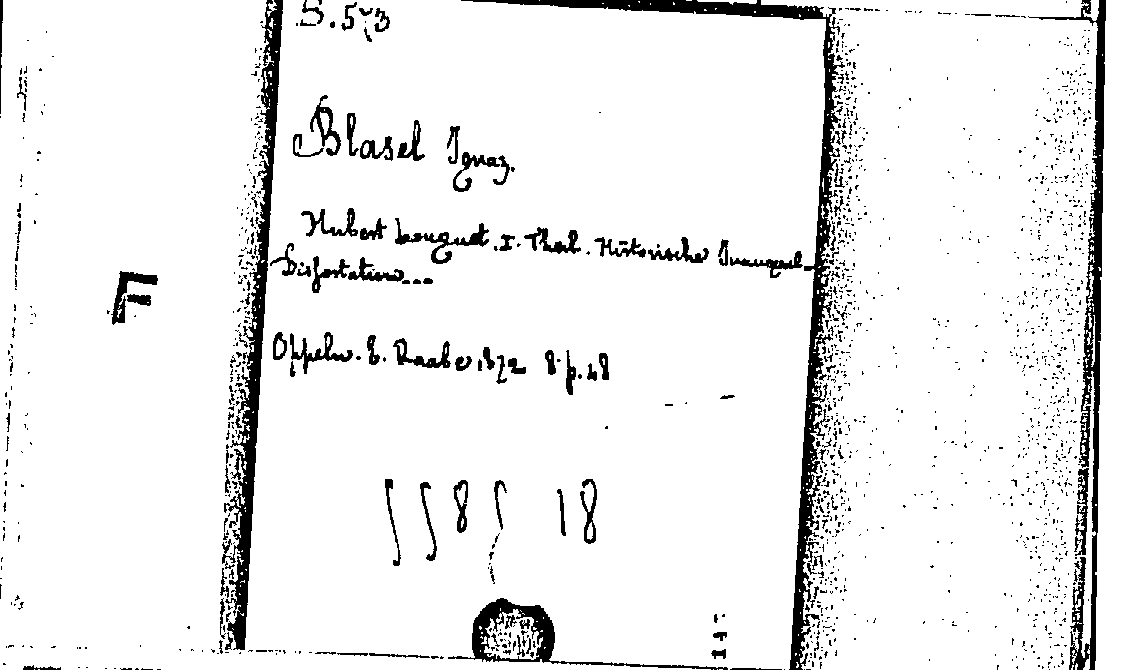 Blasel Ignaz.
Hubert Languet. I. Theil. Historische Inaugural-
Dissertation...
Oppeln. E. Raabe 1872 8° p. 48
18
F